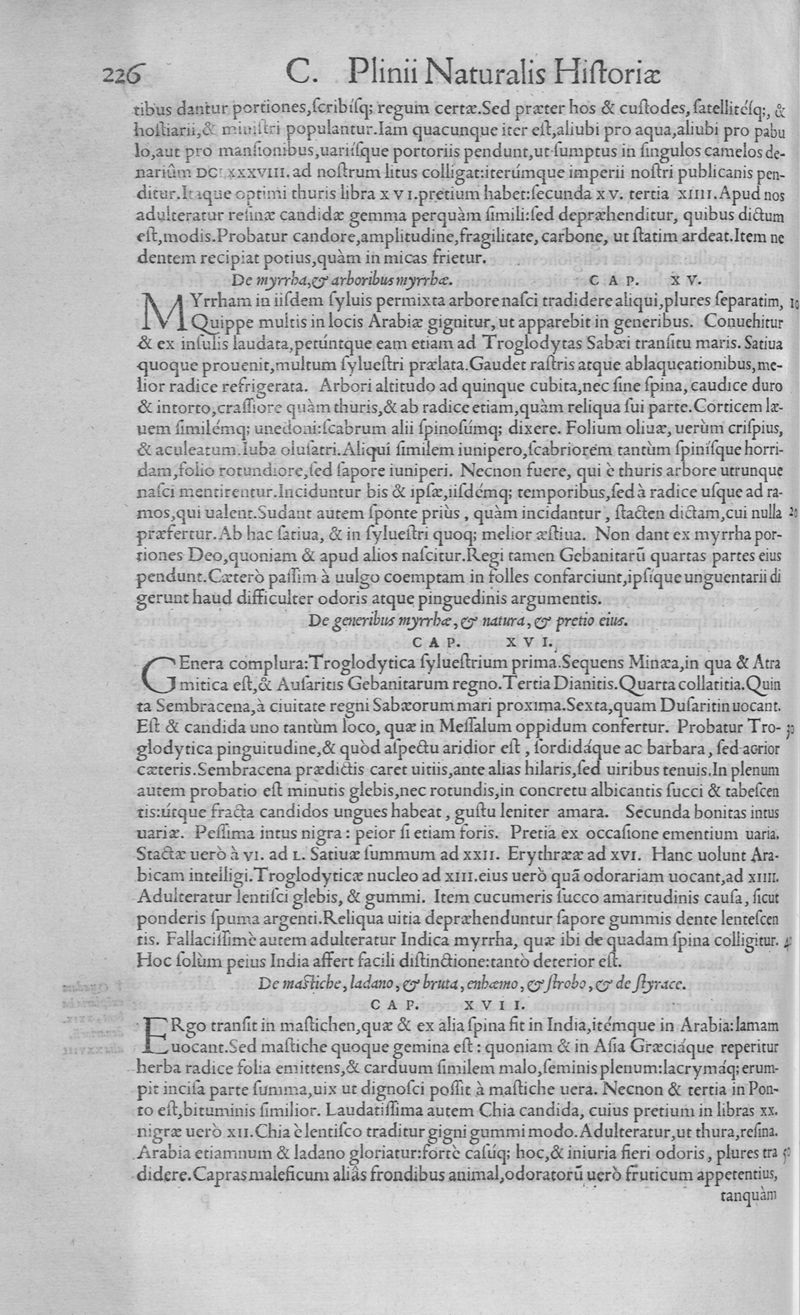 226 C. Plinii Naturalis Hiſtoriæ
tibus dantur portiones,ſcribíſq; regum certæ.Sed præter hos & cuſtodes, ſatellitéſq;, &
hoſtiarii,& miniſtri populantur.Iam quacunque iter eſt,aliubi pro aqua,aliubi pro pabu
lo,aut pro manſionibus,uariíſque portoriis pendunt,ut ſumptus in ſingulos camelos de-
nariûm XXXVIII. ad noſtrum litus colligat:iterúmque imperii noſtri publicanis pen-
ditur.Itaque optimi thuris libra X V I.pretium habet:ſecunda X V. tertia XIIII.Apud nos
adulteratur reſinæ candidæ gemma perquàm ſimili:ſed depræhenditur, quibus dictum
eſt,modis.Probatur candore,amplitudine,fragilitate, carbone, ut ſtatim ardeat.Item ne
dentem recipiat potius,quàm in micas frietur.
De myrrha,& arboribus myrrhæ. C A P. X V.
MYrrham in iiſdem ſyluis permixta arbore naſci tradidere aliqui,plures ſeparatim, 10
Quippe multis in locis Arabiæ gignitur, ut apparebit in generibus. Conuehitur
& ex inſulis laudata,petúntque eam etiam ad Troglodytas Sabæi tranſitu maris. Satiua
quoque prouenit,multum ſylueſtri prælata.Gaudet raſtris atque ablaqueationibus,me-
lior radice refrigerata. Arbori altitudo ad quinque cubita,nec ſine ſpina, caudice duro
& intorto,craſſiore quàm thuris,& ab radice etiam,quàm reliqua ſui parte.Corticem læ-
uem ſimilémq; unedoni:ſcabrum alii ſpinoſúmq; dixere. Folium oliuæ, uerùm criſpius,
& aculeatum.Iuba oluſatri.Aliqui ſimilem iunipero,ſcabriorem tantùm ſpiníſque horri-
dam,folio rotundiore,ſed ſapore iuniperi. Necnon fuere, qui è thuris arbore utrunque
naſci mentirentur.Inciduntur bis & ipſæ,iiſdémq; temporibus,ſed à radice uſque ad ra-
mos,qui ualent.Sudant autem ſponte priùs , quàm incidantur , ſtacten dictam,cui nulla 20
præfertur.Ab hac ſatiua, & in ſylueſtri quoq; melior æſtiua. Non dant ex myrrha por-
tiones Deo,quoniam & apud alios naſcitur.Regi tamen Gebanitarũ quartas partes eius
pendunt.Cæterò paſſim à uulgo coemptam in folles confarciunt,ipſique unguentarii di
gerunt haud difficulter odoris atque pinguedinis argumentis.
De generibus myrrhæ, & natura, & pretio eius.
C A P. X V I.
GEnera complura:Troglodytica ſylueſtrium prima.Sequens Minæa,in qua & Atra
mitica eſt,& Auſaritis Gebanitarum regno.Tertia Dianitis.Quarta collatitia.Quin
ta Sembracena,à ciuitate regni Sabæorum mari proxima.Sexta,quam Duſaritin uocant.
Eſt & candida uno tantùm loco, quæ in Meſſalum oppidum confertur. Probatur Tro- 30
glodytica pinguitudine,& quòd aſpectu aridior eſt , ſordidáque ac barbara , ſed acrior
cæteris.Sembracena prædictis caret uitiis,ante alias hilaris,ſed uiribus tenuis.In plenum
autem probatio eſt minutis glebis,nec rotundis,in concretu albicantis ſucci & tabeſcen
tis:útque fracta candidos ungues habeat , guſtu leniter amara. Secunda bonitas intus
uariæ. Peſſima intus nigra : peior ſi etiam foris. Pretia ex occaſione ementium uaria.
Stactæ uerò à VI. ad L. Satiuæ ſummum ad XXII. Erythrææ ad XVI. Hanc uolunt Ara-
bicam intelligi.Troglodyticæ nucleo ad XIII.eius uerò quã odorariam uocant,ad XIIII.
Adulteratur lentiſci glebis, & gummi. Item cucumeris ſucco amaritudinis cauſa, ſicut
ponderis ſpuma argenti.Reliqua uitia depræhenduntur ſapore gummis dente lenteſcen
tis. Fallaciſſimè autem adulteratur Indica myrrha, quæ ibi de quadam ſpina colligitur.
Hoc ſolùm peius India affert facili diſtinctione:tantò deterior eſt.
De maſtiche, ladano, & bruta, enhæmo, & ſtrobo, & de ſtyrace.
C A P. X V I I.
ERgo tranſit in maſtichen,quæ & ex alia ſpina fit in India,itémque in Arabia:lamam
uocant.Sed maſtiche quoque gemina eſt : quoniam & in Aſia Græciáque reperitur
herba radice folia emittens,& carduum ſimilem malo,ſeminis plenum:lacrymáq; erum-
pit inciſa parte ſumma,uix ut dignoſci poſſit à maſtiche uera. Necnon & tertia in Pon-
to eſt,bituminis ſimilior. Laudatiſſima autem Chia candida, cuius pretium in libras XX.
nigræ uerò XII.Chia è lentiſco traditur gigni gummi modo.Adulteratur,ut thura,reſina.
Arabia etiamnum & ladano gloriatur:fortè caſúq; hoc,& iniuria fieri odoris, plures tra
didere.Capras maleficum aliâs frondibus animal,odoratorũ uerò fruticum appetentius,
tanquàm